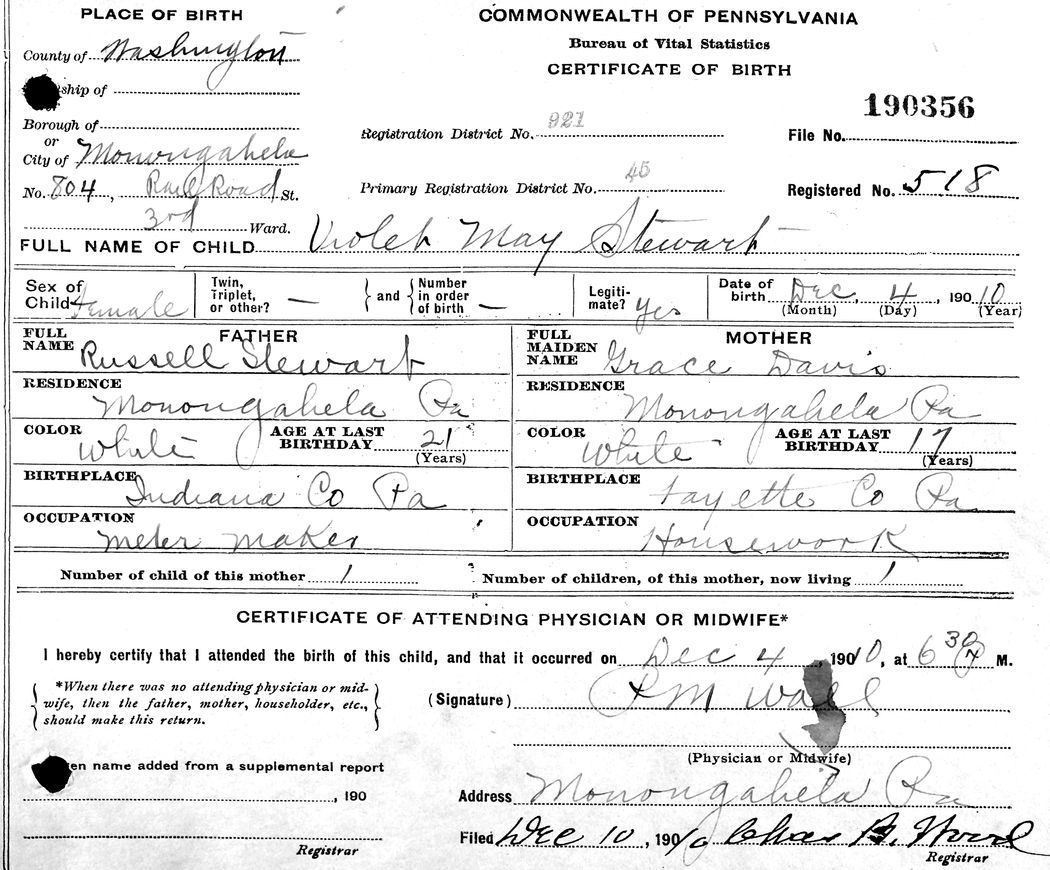 PLACE OF BIRTH
COMMONWEALTH OF PENNSYLVANIA
Bureau of Vital Statistics
CERTIFICATE OF BIRTH
County of Washington
ship of
190356
Borough of
or
City of Monongahela
Registration District No. 921
File No.
No. 804, Rail Road St.
Primary Registration District No. 45
Registered No. 518
3rd Ward.
FULL NAME OF CHILD Violet May Stewart
Sex of Child Female
Twin, Triplet, or other? —
and
Number in order of birth —
Legitimate? Yes
Date of birth Dec. 4, 1910
(Month) (Day) (Year)
FATHER
FULL NAME Russell Stewart
RESIDENCE
Monongahela Pa
COLOR White
AGE AT LAST BIRTHDAY 21
(Years)
BIRTHPLACE
Indiana Co Pa
OCCUPATION
Meter Maker
MOTHER
FULL MAIDEN NAME Grace Davis
RESIDENCE
Monongahela Pa
COLOR White
AGE AT LAST BIRTHDAY 17
(Years)
BIRTHPLACE
Fayette Co Pa
OCCUPATION
Housework
Number of child of this mother 1
Number of children, of this mother, now living 1
CERTIFICATE OF ATTENDING PHYSICIAN OR MIDWIFE*
I hereby certify that I attended the birth of this child, and that it occurred on Dec 4, 1910, at 6 30 M.
*When there was no attending physician or mid-
wife, then the father, mother, householder, etc.,
should make this return.
(Signature) Wall
(Physician or Midwife)
en name added from a supplemental report
, 190
Address Monongahela Pa
Filed Dec 10, 1910 Chas B. Wood
Registrar
Registrar